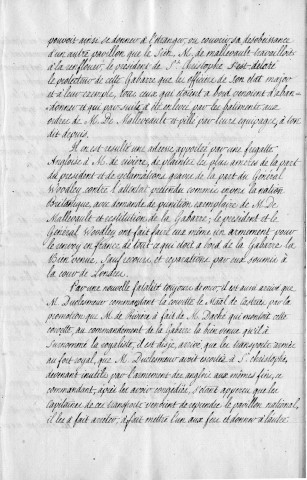 pouvoit ainsi se donner à l'étranger, ou couvrir sa désobéissance
d'un autre pavillon que le sien. M. de mallevault travailloit
à la renflouer, le président de St. Christophe s'est déclaré
le protecteur de cette Gabarre que les officiers de son état major
et à leur exemple, tous ceux qui étoient à bord venoient d'aban-
donner et qui par suite a été enlevée par les bâtiments aux
ordres de M. De Mallevault et pillé par leurs équipages, à ce
dit depuis.
Il en est resulté une adresse apportée par une frégatte
Anglaise à M. de rivière, de plaintes les plus amères de la part
du président et de réclamations graves de la part du Général
Woodley contre l'attentat prétendu commis envers la nation
Britanique, avec demande de punition exemplaire de M. De
Mallevault et restitution de la Gabarre; le président et le
Général Woodley ont fait faire eux même un armement pour
le renvoy en france de tout ce qui étoit à bord de la Gabarre la
Bien venue. Sauf erreurs et réparations par eux soumis à
la cour de Londres.
Par une nouvelle fatalité toujours de mer, il est aussi arrivé que
M. Duclesmeur commandant la corvette le Maal. de Castries par la
promotion que M. de Riviere a fait de M. Daché qui montoit cette
corvette, au commandement de la Gabare la bien venue qu'il a
surnommé la royaliste, est disje, arrivé, que les transports armés
au fort royal, que M. Duclesmeur avoit escorté à St. Christophe,
devenant inutils par l'armement des anglais aux mêmes fins, ce
commandant, après les avoir congediés, s'étant apperçu que les
Capitaines de ces transports venoient de reprendre le pavillon national,
il les a fait arrêter, a fait mettre l'un aux fers et donner à l'autre